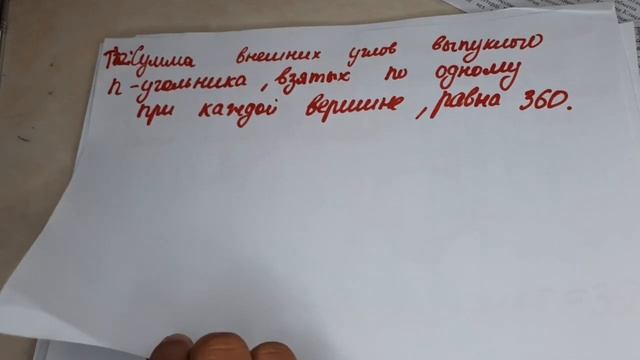 Т2: Сумма внешних углов выпуклого
n-угольника, взятых по одному
при каждой вершине, равна 360.